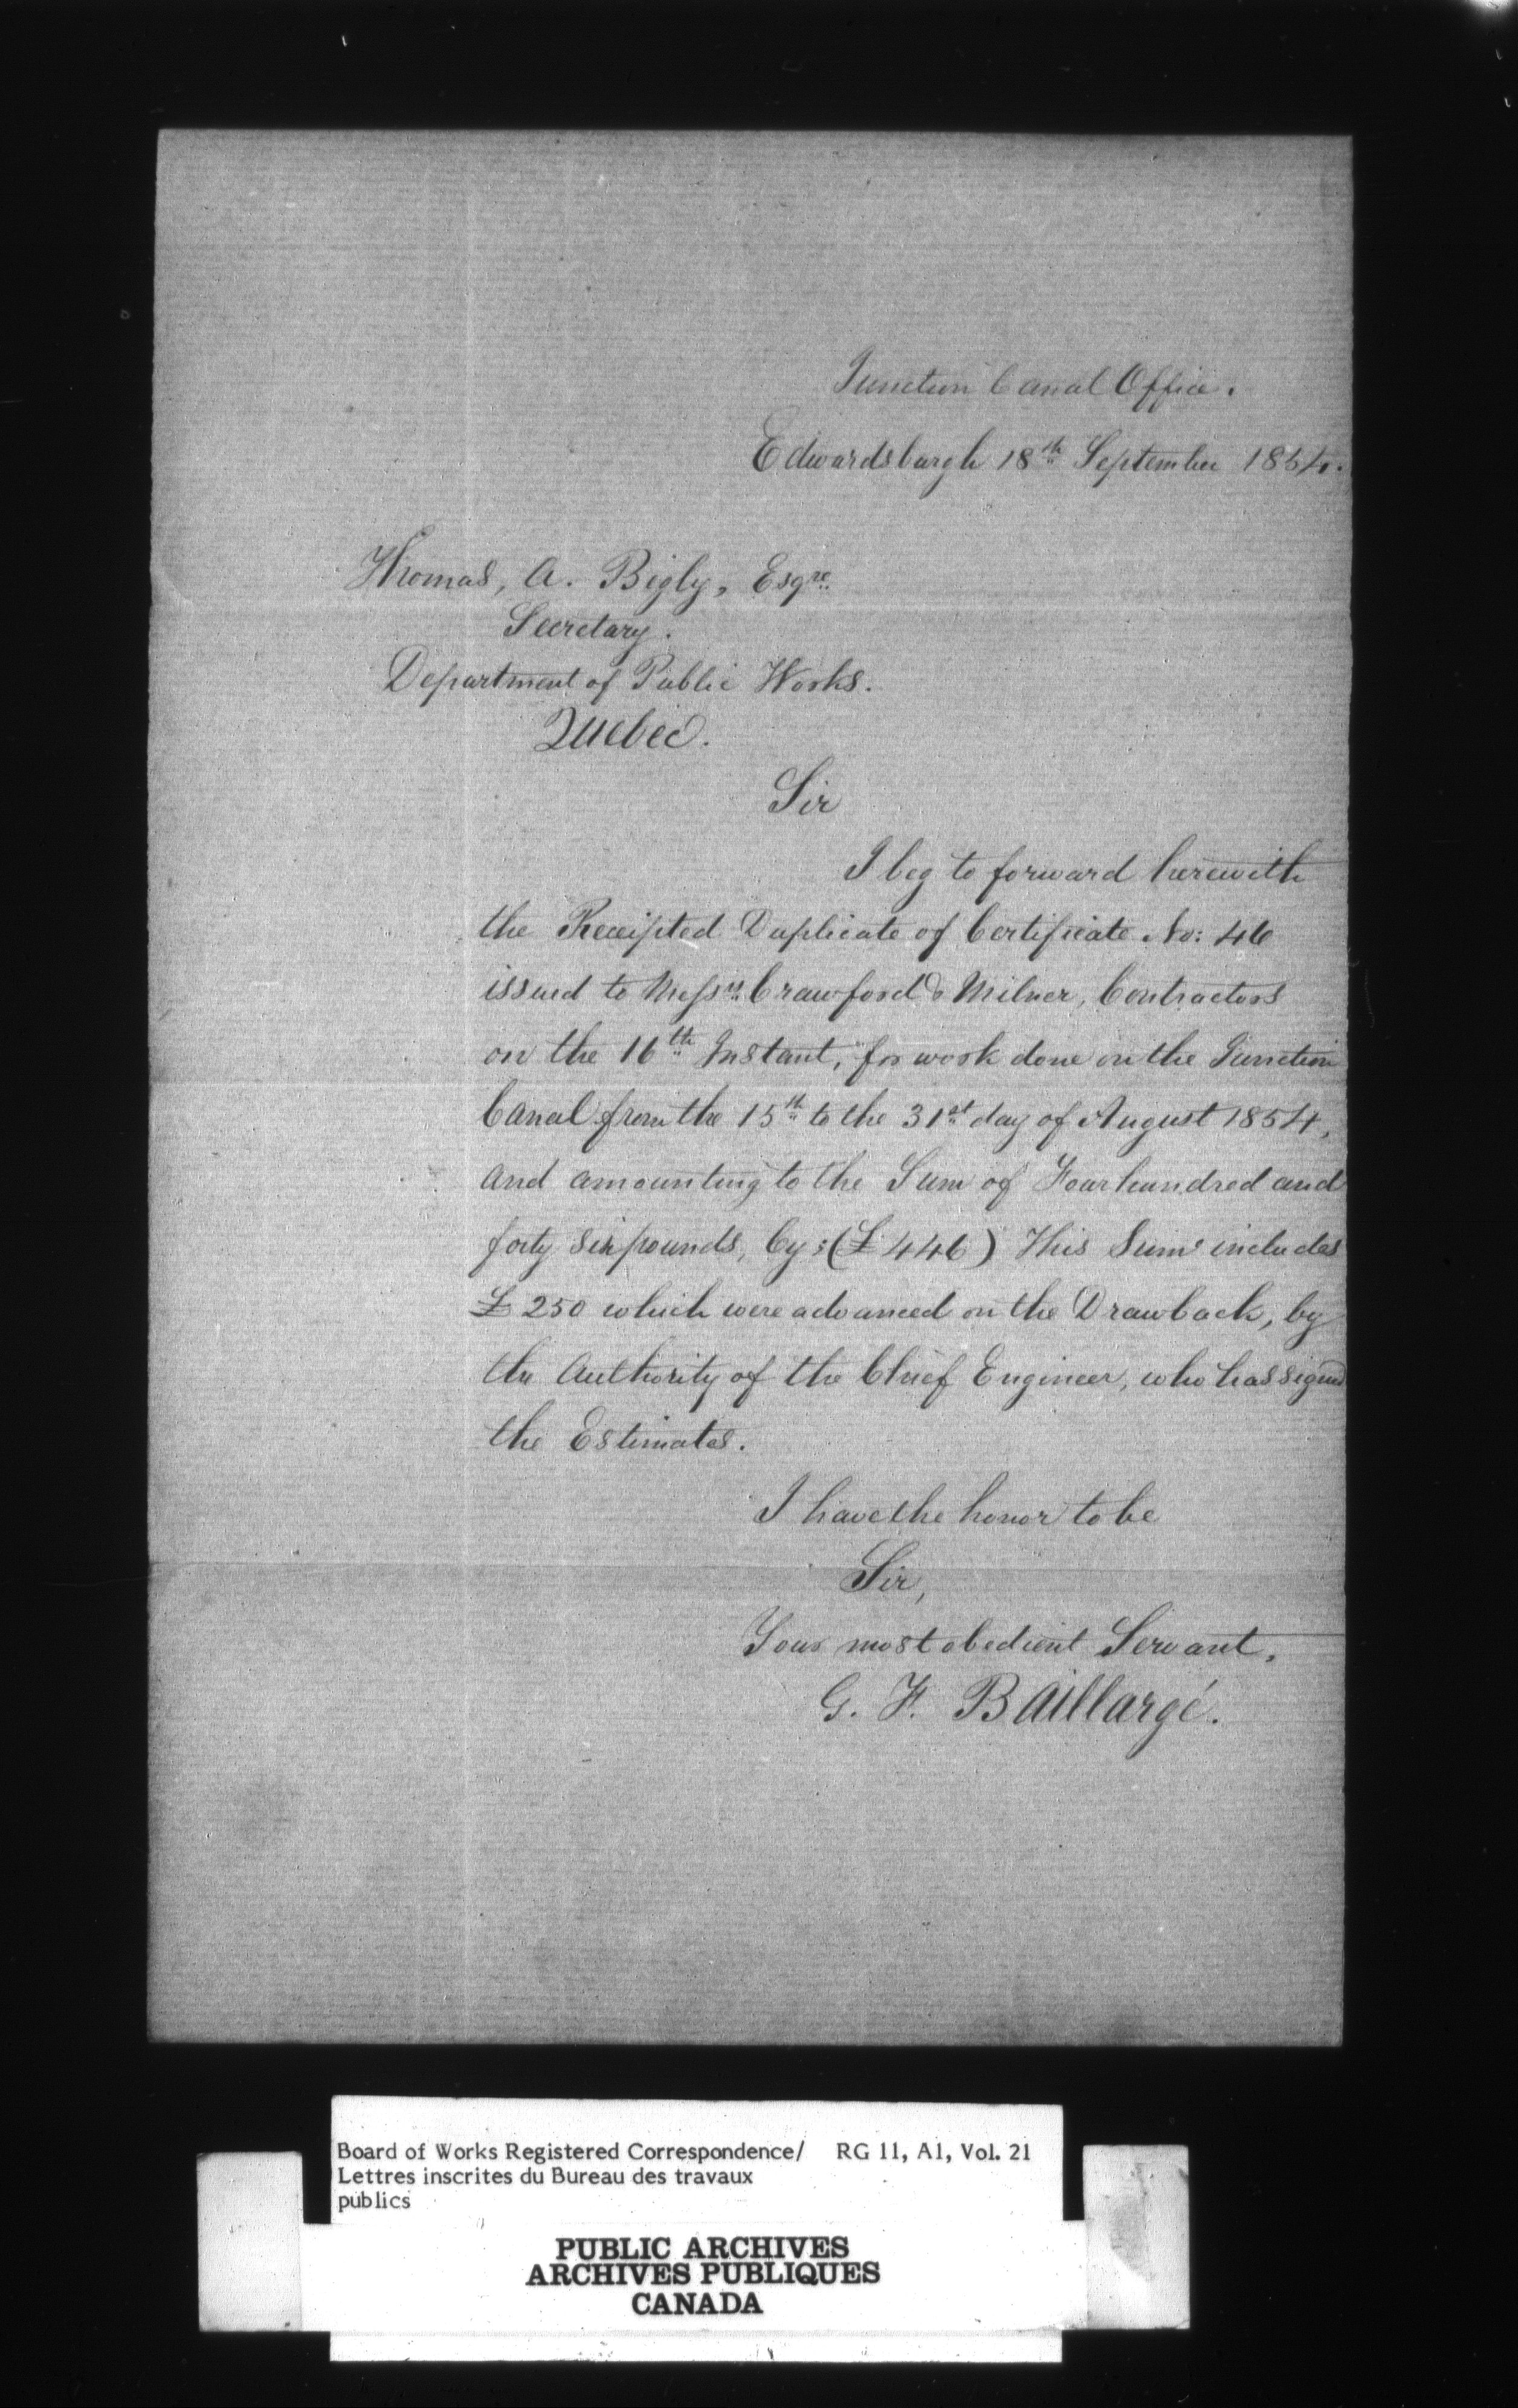 Junction Canal Office.
Edwardsburgh 18th September 1854.
Thomas, A. Bigly, Esqre.
Secretary.
Department of Public Works.
Quebec.
Sir
I beg to forward herewith
the Receipted Duplicate of Certificate No: 46
issued to Messrs. Crawford & Milner, Contractors
on the 16th Instant, for work done on the Junction
Canal from the 15th to the 31st day of August 1854,
and amounting to the Sum of Four hundred and
forty six pounds, Cy: (£446) This Sum includes
£250 which were advanced on the Drawback, by
the Authority of the Chief Engineer, who has signed
the Estimates.
I have the honor to be
Sir,
Your most obedient Servant,
G. F. Baillargé.
Board of Works Registered Correspondence/ RG 11, A1, Vol. 21
Lettres inscrites du Bureau des travaux
publics
PUBLIC ARCHIVES
ARCHIVES PUBLIQUES
CANADA